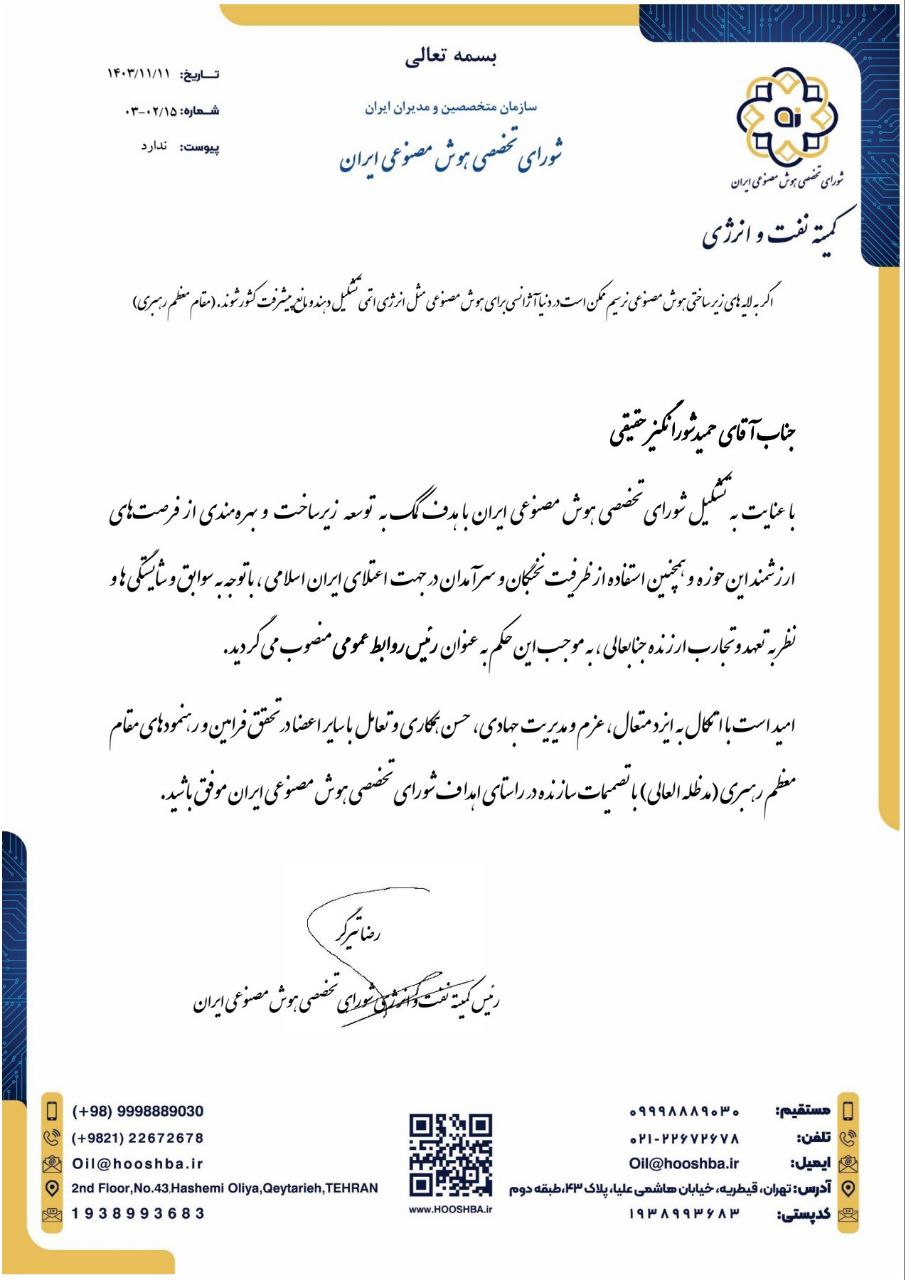 بسمه تعالی
سازمان متخصصین و مدیران ایران
شورای تخصصی هوش مصنوعی ایران
تـــاریخ: ۱۴۰۳/۱۱/۱۱
شــماره: ۰۳-۰۲/۱۵
پیوست: ندارد
ai
شورای تخصصی هوش مصنوعی ایران
کمیته نفت و انرژی
اگر به لایه های زیرساختی هوش مصنوعی نرسیم ممکن است در دنیا آژانسی برای هوش مصنوعی مثل انرژی اتمی تشکیل دهند و مانع پیشرفت کشور شوند. (مقام معظم رهبری)
جناب آقای حمید شورانگیز حقیقی
با عنایت به تشکیل شورای تخصصی هوش مصنوعی ایران با هدف کمک به توسعه زیرساخت و بهره‌مندی از فرصت‌های
ارزشمند این حوزه و همچنین استفاده از ظرفیت نخبگان و سرآمدان در جهت اعتلای ایران اسلامی، با توجه به سوابق و شایستگی ها و
نظر به تعهد و تجارب ارزنده جنابعالی، به موجب این حکم به عنوان رئیس روابط عمومی منصوب می گردید.
امید است با اتکال به ایزد متعال، عزم و مدیریت جهادی، حسن همکاری و تعامل با سایر اعضا در تحقق فرامین و رهنمودهای مقام
معظم رهبری (مدظله العالی) با تصمیمات سازنده در راستای اهداف شورای تخصصی هوش مصنوعی ایران موفق باشید.
رضا تیرگر
رئیس کمیته نفت و انرژی شورای تخصصی هوش مصنوعی ایران
مستقیم: ۰۹۹۹۸۸۸۹۰۳۰
تلفن: ۰۲۱-۲۲۶۷۲۶۷۸
ایمیل: Oil@hooshba.ir
آدرس: تهران، قیطریه، خیابان هاشمی علیا، پلاک ۴۳، طبقه دوم
کدپستی: ۱۹۳۸۹۹۳۶۸۳
www.HOOSHBA.ir
(+98) 9998889030
(+9821) 22672678
Oil@hooshba.ir
2nd Floor,No.43,Hashemi Oliya,Qeytarieh,TEHRAN
1938993683